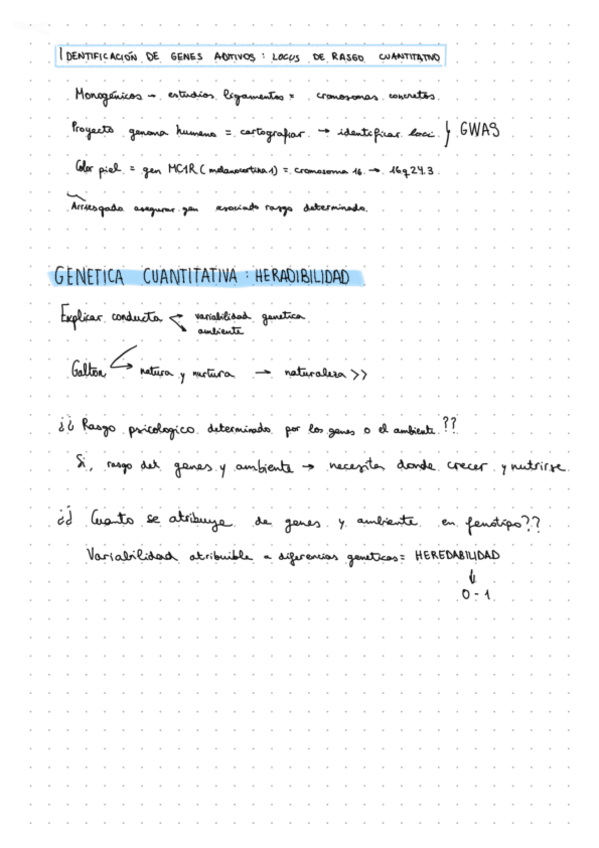 IDENTIFICACIÓN DE GENES ADTIVOS: LOCUS DE RASGO CUANTITATIVO
Monogénicos → estudios ligamentos = cromosomas concretos.
Proyecto genoma humano = cartografiar → identificar loci } GWAS
Color piel = gen MC1R (melanocortina 1) = cromosoma 16 → 16q24.3
Arriesgado asegurar gen asociado rasgo determinado.
GENETICA CUANTITATIVA: HERADIBILIDAD
Explicar conducta variabilidad genetica
ambiente
Galton → natura y nurtura → naturaleza >>
¿¿ Rasgo psicologico determinado por los genes o el ambiente ??
Si, rasgo det genes y ambiente → necesitas donde crecer y nutrirse.
¿¿ Cuanto se atribuye de genes y ambiente en fenotipo??
Variabilidad atribuible a diferencias geneticas = HEREDABILIDAD
↓
0 - 1